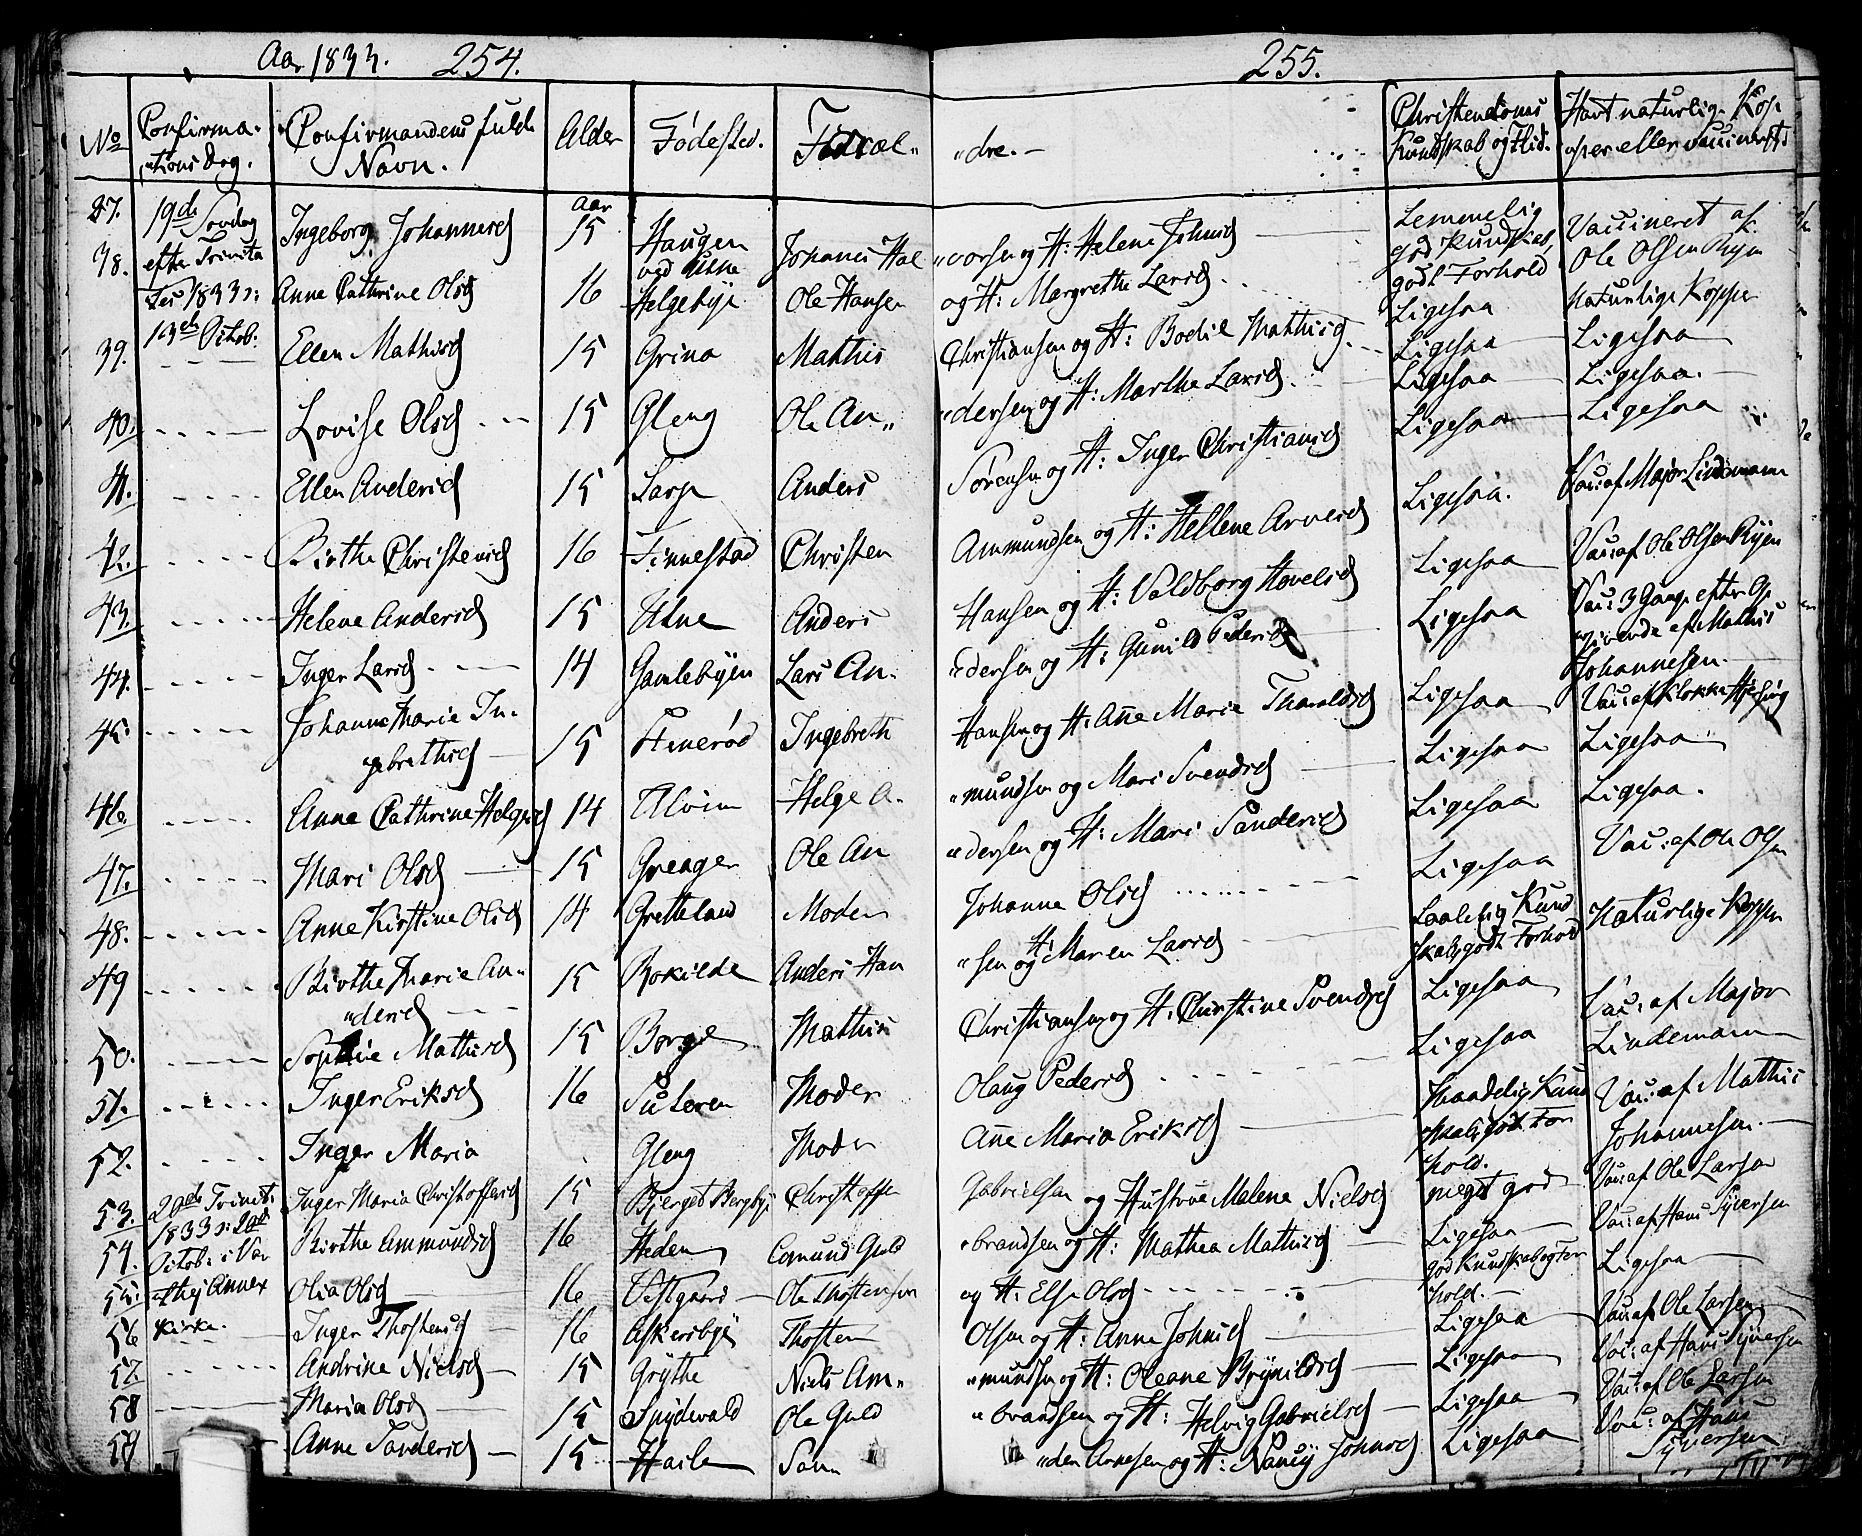 Aar 1833. 254.
255.
No
Confirma-
tions Dag.
Confirmandens fulde
Navn.
Alder
Fødested.
Foræl-
dre.
Christendoms
Kundskab og Flid.
Havt naturlig. Kop-
per eller vaccineret
37. 19de Søndag Ingeborg Johannesd aar 15 Haugen Johanes Hal-
vorsen og H: Helene Johnsd Temmelig god Kundskab godt Forhold Vaccineret af Ole Olsen Ryen
38. efter Trinita Anne Cathrine Olsd 16 Helgebye Ole Hansen og H: Margrethe Larsd Ligesaa Naturlige Kopper
tes 1833 :
13de Octob:
39. Ellen Mathisd 15 Grina Mathis Christiansen og H: Bodil Mathisd. Ligesaa Ligesaa
40. Lovise Olsd 15 Gleng Ole An-
dersen og H: Marthe Larsd. Ligesaa Ligesaa.
Ligesaa Ligesaa
41. Ellen Andersd 15 Sarp Anders Sørensen og H: Inger Christiansd Ligesaa. Vac: af Major Lindemann
42. Birthe Christensd 16 Finnestad Christen Ammundsen og H: Hellene Arnesd Ligesaa Vac: af Ole Olsen Ryen
43. Helene Andersd 15 Utne Anders Hansen og H: Valdborg Hovelsd Ligesaa Vac: 3 Gange efter
af Mathis
Johannesen.
44. Inger Larsd 14 Gamlebyen Lars An-
dersen og H: Gunild Pedersd Ligesaa Vac: af Klokker
45. Johanne Marie In-
gebrethsd 15 Ingebreth Hansen og H: Ane Marie Tharaldsd Ligesaa Ligesaa
46. Anne Cathrine Helgesd 14 Alvim Helge A-
mundsen og Mari Svendsd Ligesaa Ligesaa.
47. Mari Olsd 15 Greager Ole An
dersen og H: Mari Sandersd Ligesaa Vac: af Ole Olsen
48. Anne Kirstine Olsd 14 Grettland Moder Johanne Olsd Taalelig Kund
skab, godt Forhold Naturlige Kopper
49 Birthe Marie An-
dersd 15 Rokilde Anders Han
sen og H: Maren Larsd Ligesaa Vac: af Major
Lindemann
50. Sophie Mathisd 15 Borge Mathis Christiansen og H: Christine Svendsd Ligesaa
51. Inger Eriksd 16 Moder Olaug Pedersd Maadelig Kund
skab, god For
hold. Vac: af Mathis
Johannesen.
52. Inger Maria Gleng Moder Ane Maria Eriksd
53. 20de Trinit: Inger Maria Christoffersd 15 Bjerget Bergbye Christoffer Gabrielsen og Hustrue Malene Nielsd meget god Vac: af Ole Larsen
54. 1833 : 20de Birthe Ammundsd 16 Heden Amund Guld
brandsen og H: Mathea Mathisd Ligesaa Vac: af Hans Syversen
Octob: i Var
55. Olia Olsd 16 Vestgaard Ole Thostensen og H: Else Olsd god Kundskab og For
hold. Ligesaa
theig Annex
Kirke.
56 Inger Thostensd 16 Askersbye Thosten Olsen og H: Anne Johnsd Ligesaa Vac: af Ole Larsen
57. Andrine Nielsd 15 Grythe Niels Am-
mundsen og H: Oleane Brynildsd Ligesaa Vac: af Hans Syversen
58 Maria Olsd 15 Snydevald Ole Guld
brandsen og H: Helvig Gabrielsd Ligesaa Vac: af Ole Larsen
59 Anne Sandersd 15 San-
den Arnesen og H: Nancy Johnsd Ligesaa Vac: af Hans
Syversen